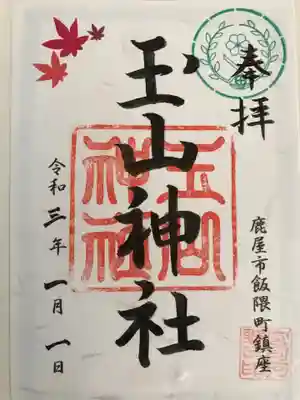 奉拝
鹿屋市飯隈町鎮座
玉山神社
令和三年一月一日